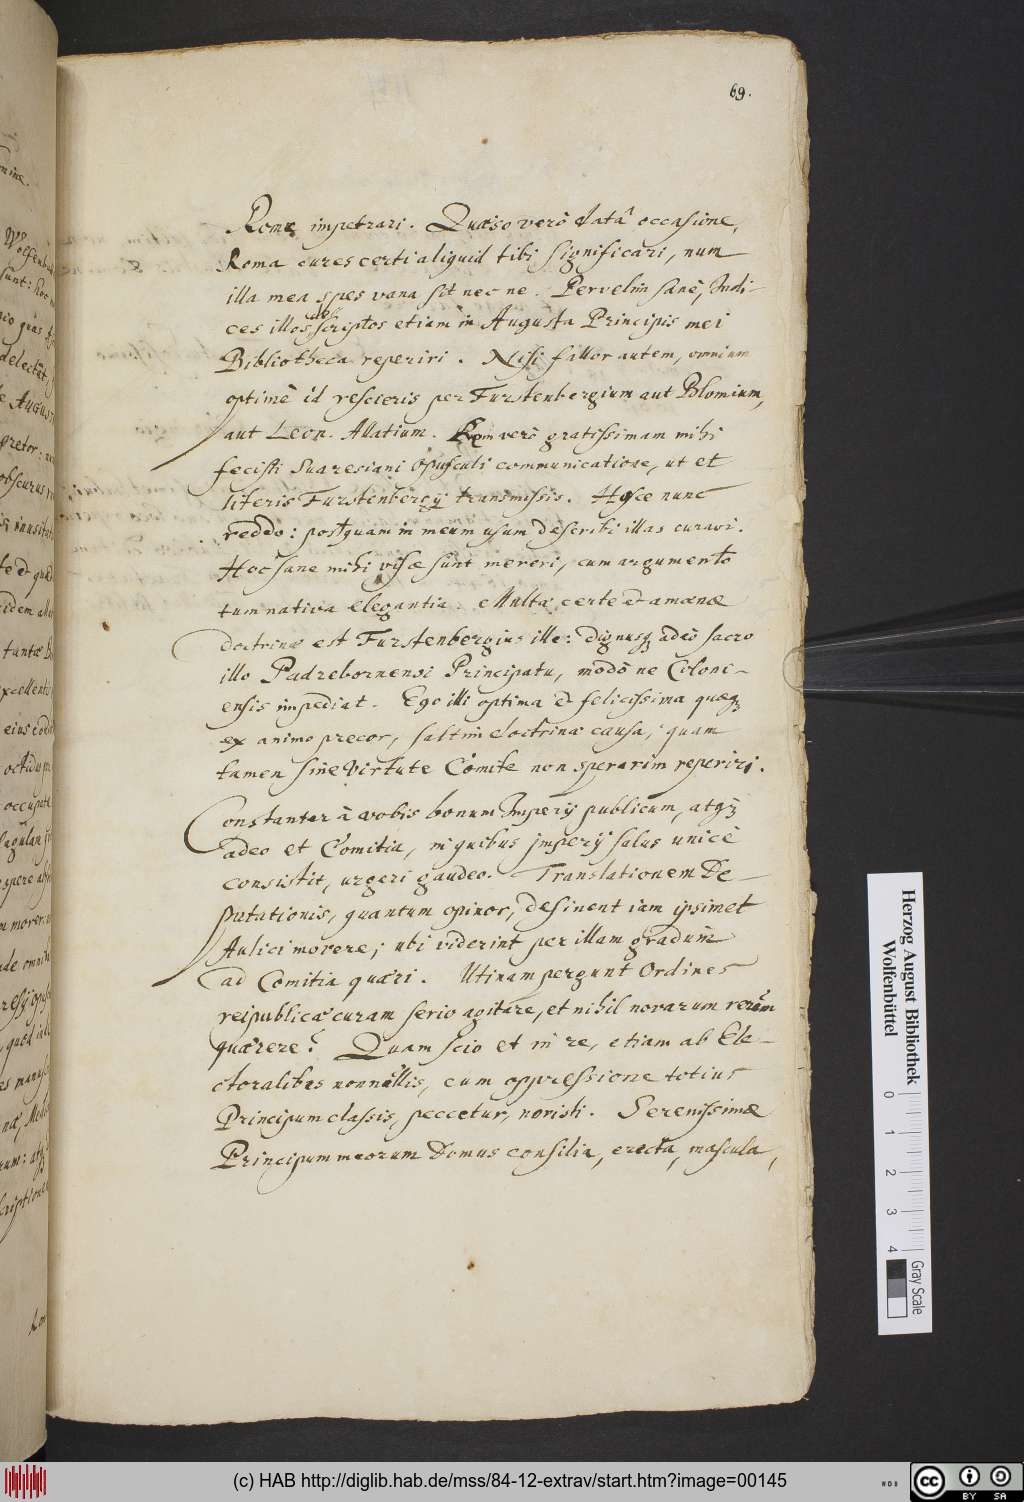 69.
Romæ impetrari. Quæso verò datâ occasione,
Roma cures certi aliquid tibi significari, num
illa mea spes vana sit nec ne. Pervelim sanè, Indi-
ces illos, scriptos etiam in Augusta Principis mei
Bibliotheca reperiri. Nisi fallor autem, omnium
optimè id rescieris per Furstenbergium aut Blomium,
aut Leon. Allatium. Rem verò gratissimam mihi
fecisti Suaresiani Opusculi communicatione, ut et
literis Furstenbergij transmissis. Hosce nunc
reddo: postquam in meum usum describi illas curavi.
Hoc sane mihi visæ sunt mereri, cum argumento
tum nativa elegantia. Multæ certe et amœnæ
doctrinæ est Furstenbergius ille: dignusq adeò sacro
illo Padrebornensi Principatu, modò ne Colonc-
ensis impediat. Ego illi optima et felicissima quæq
ex animo precor, saltim doctrinæ causa, quam
tamen sine Virtute Comite non sperarim reperiri.
Constanter à vobis bonum Imperij publicum, atq
adeo et Comitia, in quibus jmperij salus unicè
consistit, urgeri gaudeo. Translationem De-
putationis, quantum opinor, desinent iam ipsimet
Aulici movere; ubi viderint per illam gradum
ad Comitia quæri. Utinam pergunt Ordines
reipublicæ curam serio agitare, et nihil novarum rerum
quærere? Quam scio et in re, etiam ab Ele-
ctoralibus nonnullis, cum oppressione totius
Principum classis, peccetur, noristi. Serenissimæ
Principum meorum Domus consilia, erecta, mascula,
Herzog August Bibliothek
Wolfenbüttel
0 1 2 3 4
Gray Scale
(c) HAB http://diglib.hab.de/mss/84-12-extrav/start.htm?image=00145
cc BY SA